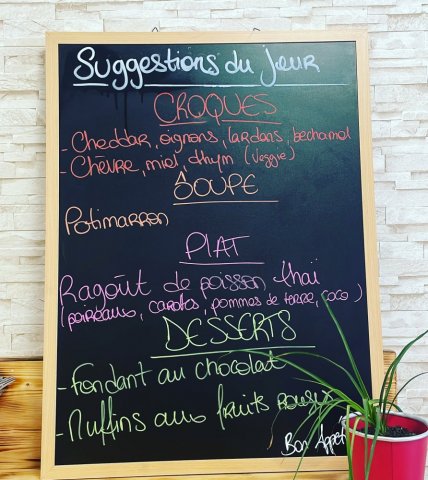 Suggestions du jour
CROQUES
- Cheddar, oignons, lardons, bechamel
- Chèvre, miel, thym (veggie)
SOUPE
Potimarron
PLAT
Ragoût de poisson thaï
(poireaux, carottes, pommes de terre, coco)
DESSERTS
- Fondant au chocolat
- Muffins aux fruits rouges
Bon Appétit